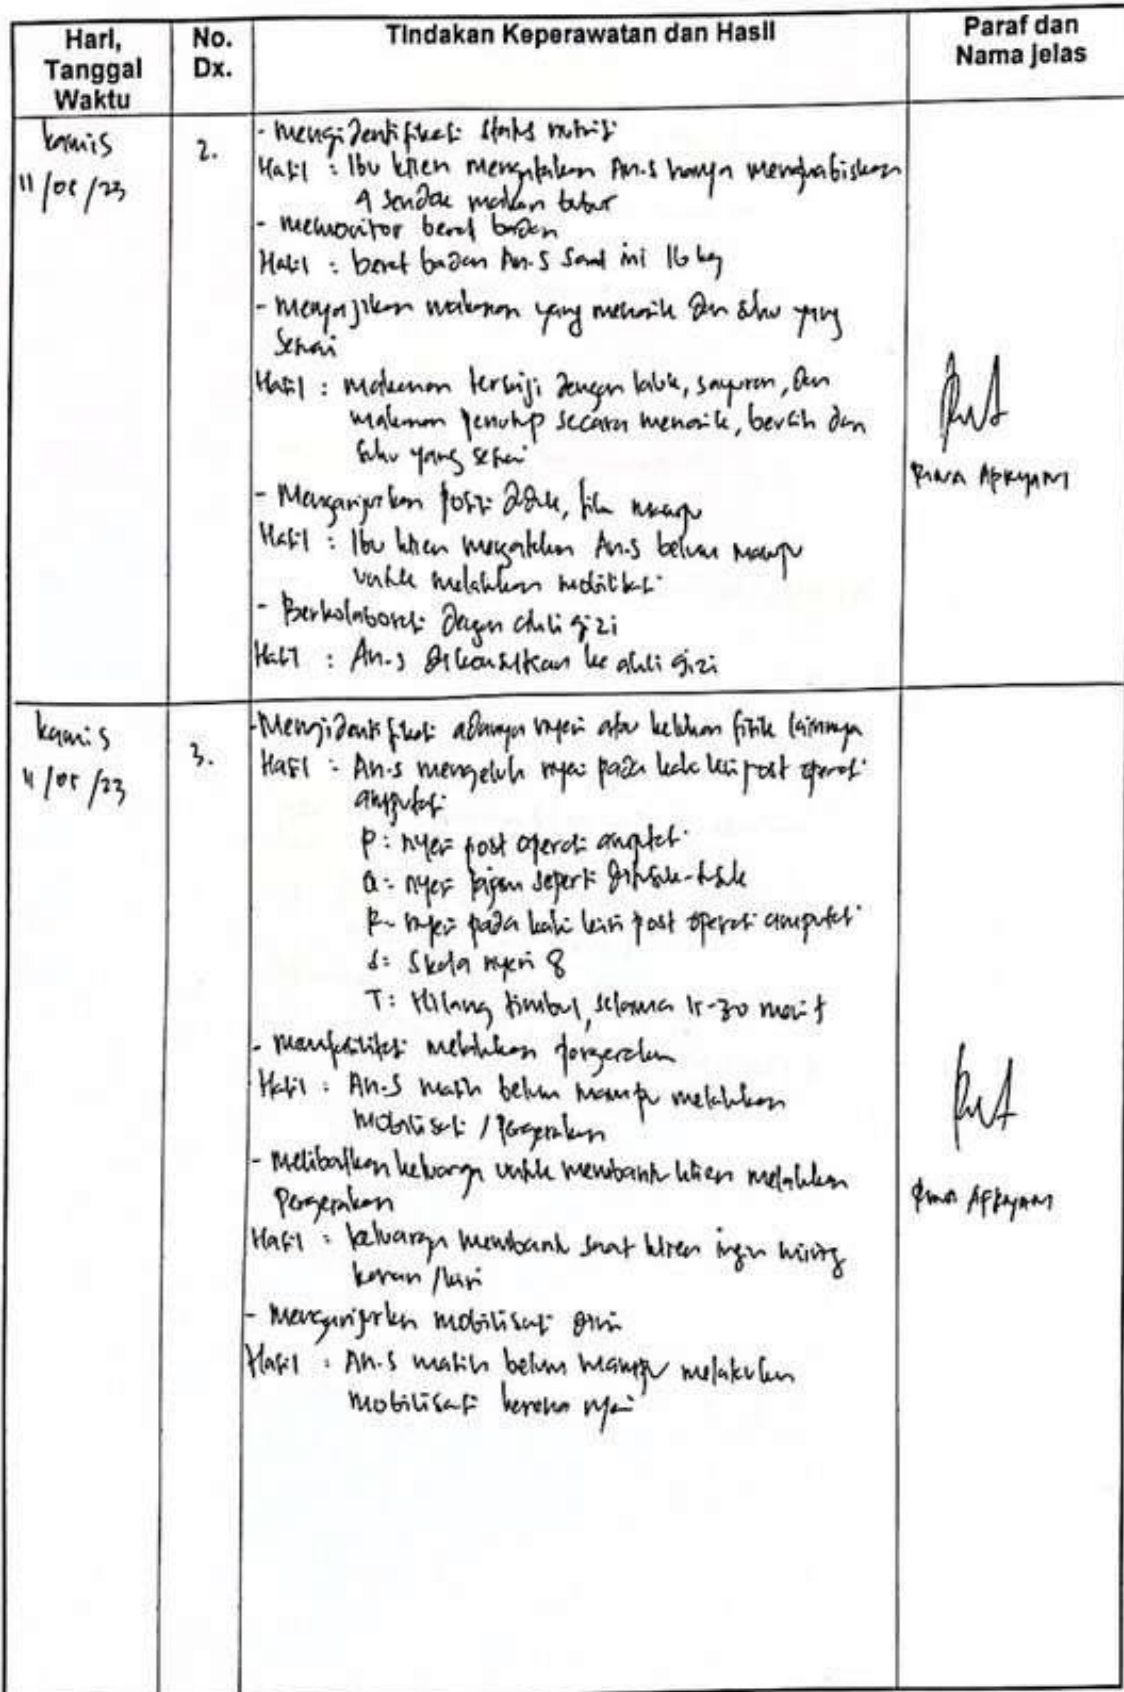 Hari, Tanggal Waktu
No. Dx.
Tindakan Keperawatan dan Hasil
Paraf dan Nama jelas
kamis
11/05/23
2.
- mengidentifikasi status nutrisi
Hasil : Ibu klien mengatakan An.S hanya menghabiskan
4 sendok makan bubur
- memonitor berat badan
Hasil : berat badan An.S saat ini 16 kg
- menyajikan makanan yang menarik dan suhu yang
sesuai
Hasil : makanan tersaji dengan lauk, sayuran, dan
makanan penutup secara menarik, bersih dan
suhu yang sesuai
- Menganjurkan posisi duduk, bila mampu
Hasil : Ibu klien mengatakan An.S belum mampu
untuk melakukan mobilisasi
- Berkolaborasi dengan ahli gizi
Hasil : An.S dikonsulkan ke ahli gizi
kamis
11/05/23
3.
- Mengidentifikasi adanya nyeri atau keluhan fisik lainnya
Hasil : An.S mengeluh nyeri pada kaki kiri post operasi
amputasi
P : nyeri post operasi amputasi
Q : nyeri tajam seperti ditusuk-tusuk
R : nyeri pada kaki kiri post operasi amputasi
S : Skala nyeri 8
T : Hilang timbul, selama 15-30 menit
- memfasilitasi melakukan pergerakan
Hasil : An.S masih belum mampu melakukan
mobilisasi / pergerakan
- melibatkan keluarga untuk membantu klien melakukan
Pergerakan
Hasil : keluarga membantu saat klien ingin miring
kanan / kiri
- menganjurkan mobilisasi dini
Hasil : An.S masih belum mampu melakukan
mobilisasi karena nyeri